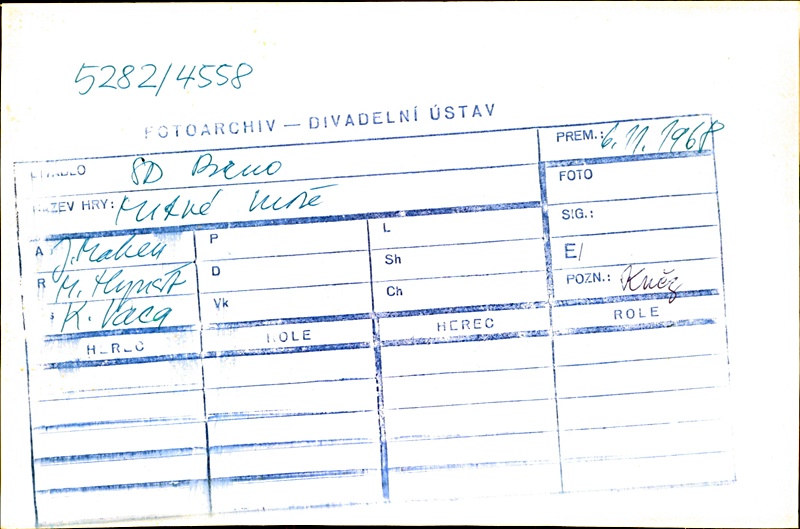 5282/4558
FOTOARCHIV — DIVADELNÍ ÚSTAV
DIVADLO SD Brno
PREM.: 6. 11. 1968
NÁZEV HRY: Mrtvé moře
FOTO
SIG.:
E/
POZN.: Kněz
A J. Mahen
R M. Hynšt
S K. Vaca
P
D
Vk
L
Sh
Ch
HEREC ROLE HEREC ROLE